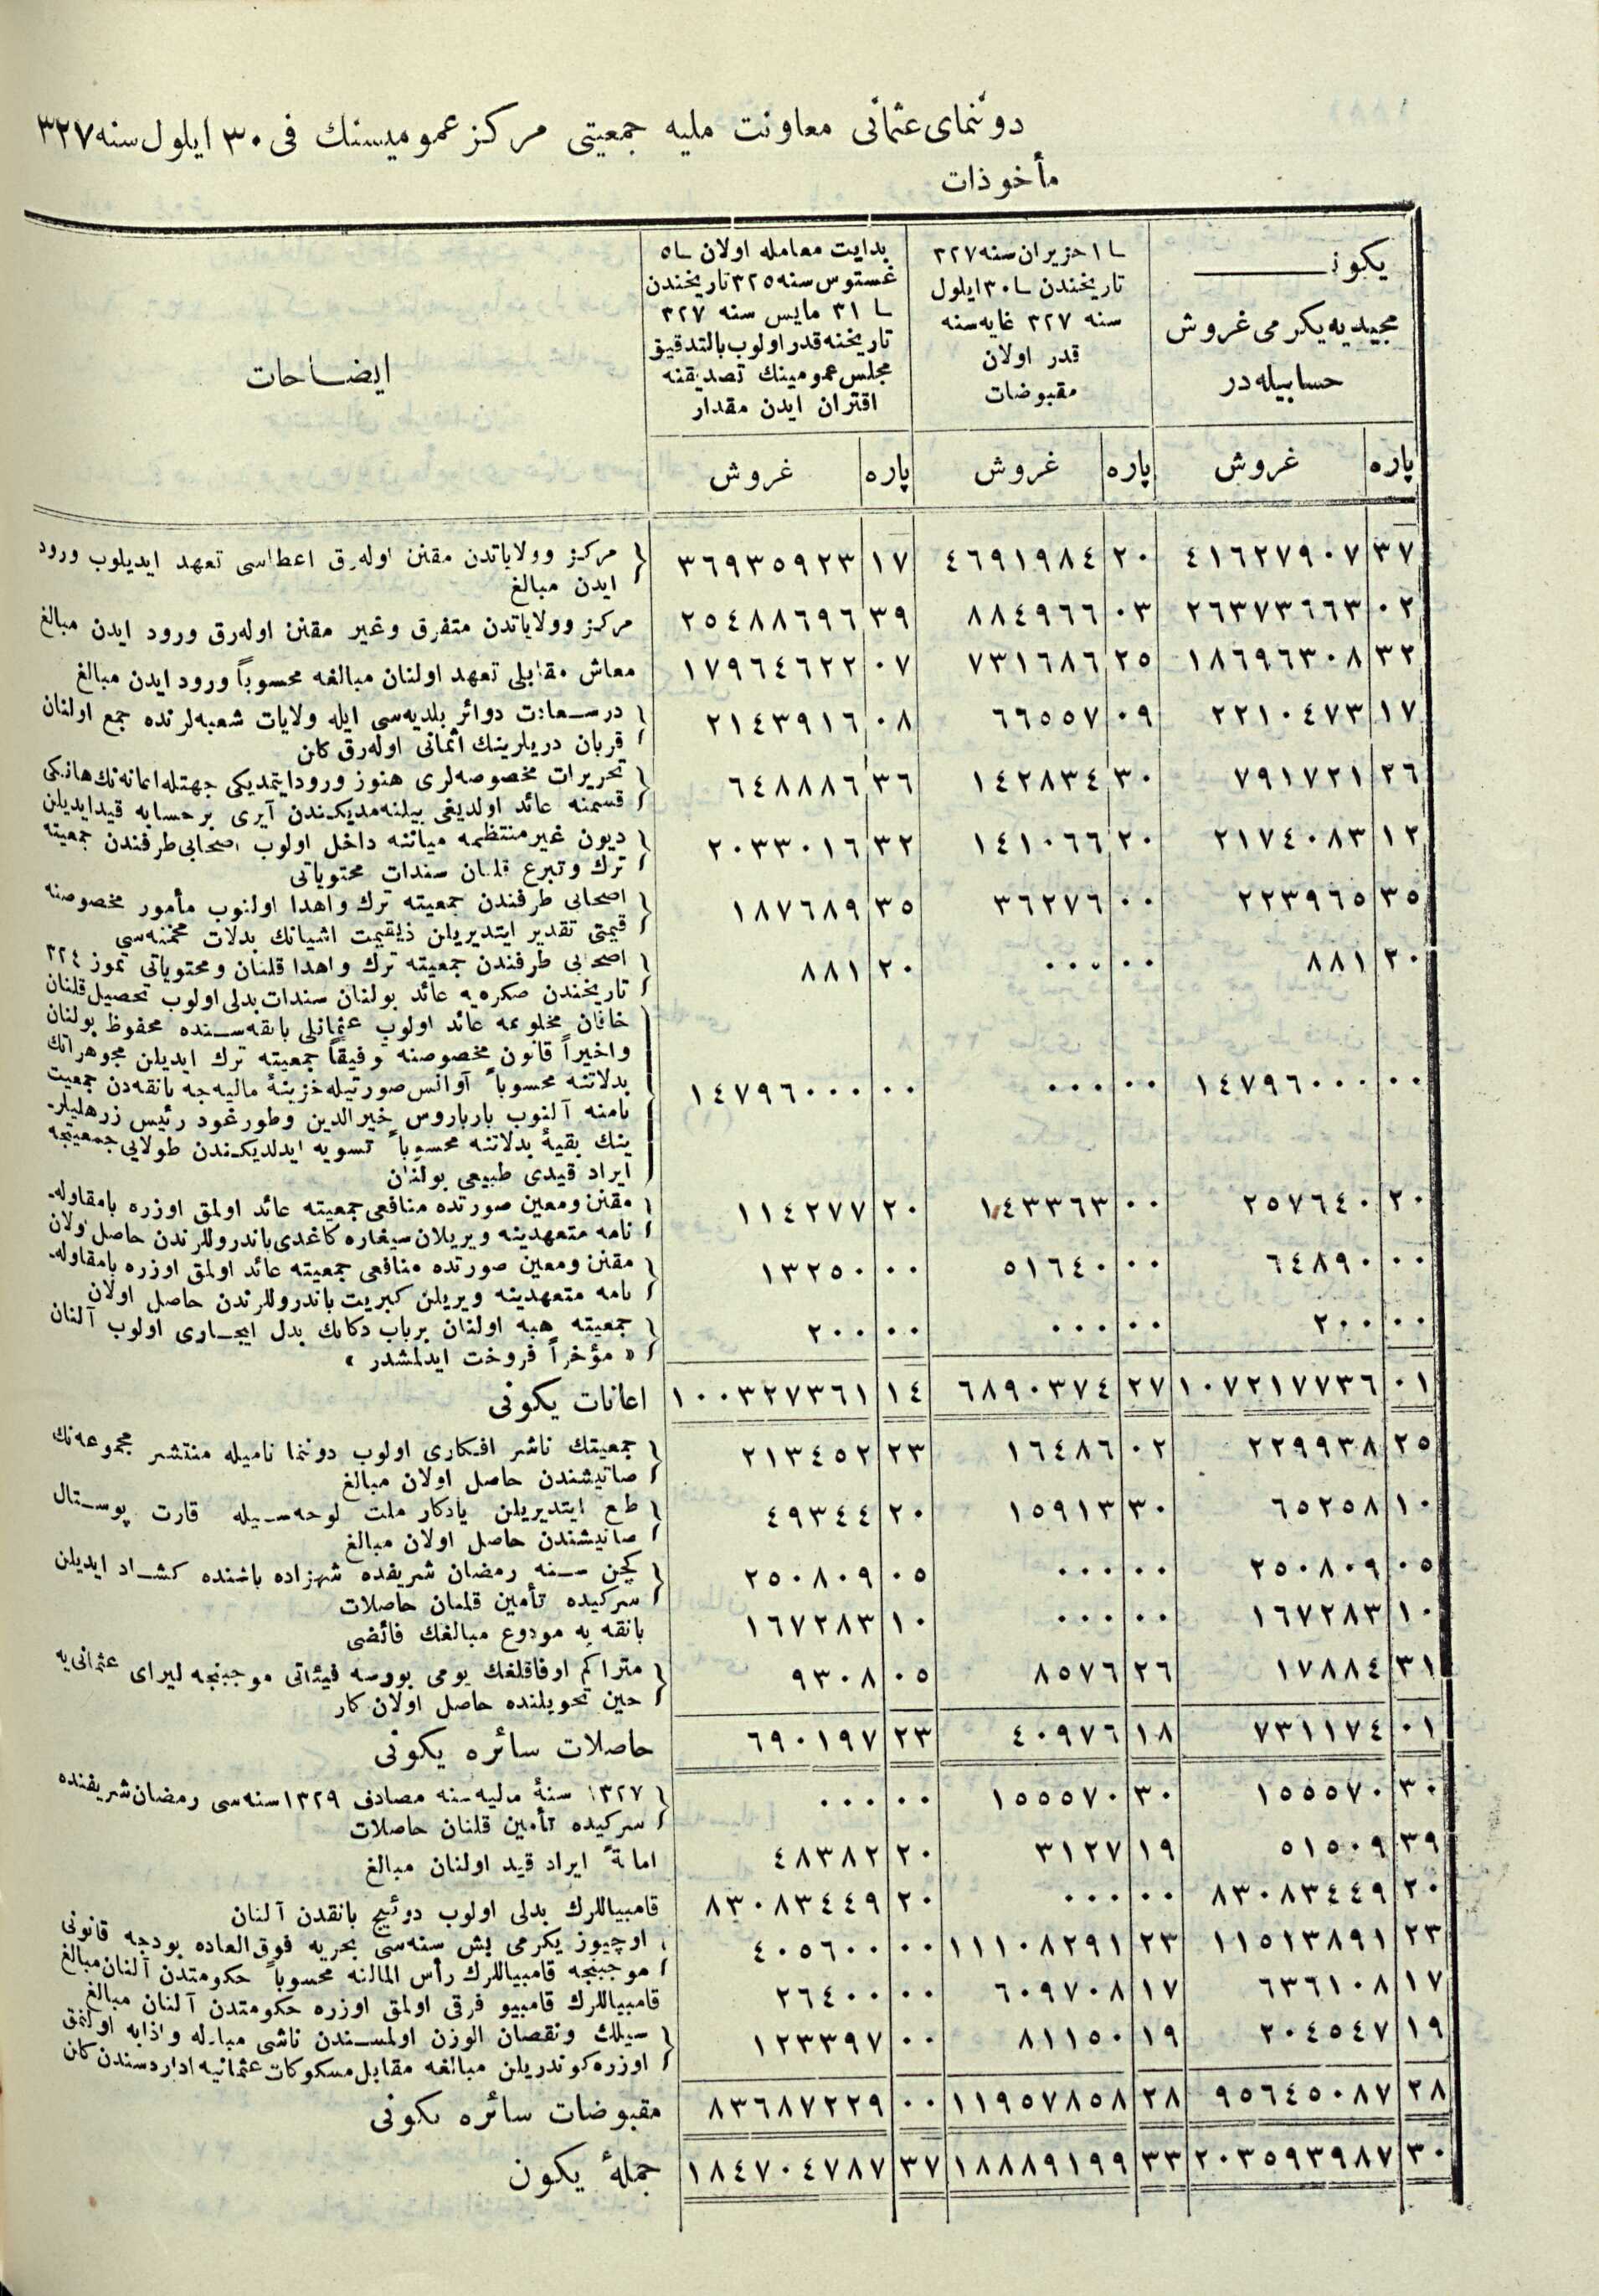 دوننمای عثمانی معاونت ملیه جمعیتی مرکز عمومیسنك فی ۳۰ ایلول سنه ۳۲۷
مأخوذات
یکون
مجیدیه یکرمی غروش
حسابیله در
لـ ۱ حزیران سنه ۳۲۷
تاریخندن لـ ۳۰ ایلول
سنه ۳۲۷ غایه سنه
قدر اولان
مقبوضات
بدایت معامله اولان لـ ۵
غستوس سنه ۳۲۵ تاریخندن
لـ ۳۱ مایس سنه ۳۲۷
تاریخنه قدر اولوب بالتدقیق
مجلس عمومینك تصدیقنه
اقتران ایدن مقدار
ایضاحات
پاره غروش پاره غروش پاره غروش
۳۷ ٤۱٦۲۷۹۰۷ ۲۰ ٤٦۹۱۹۸٤ ۱۷ ۳٦۹۳٥۹۲۳ مرکز وولایاتدن مقنن اوله رق اعطاسی تعهد ایدیلوب ورود
ایدن مبالغ
۰۲ ۲٦۳۷۳٦٦۳ ۰۳ ۸۸٤۹٦٦ ۳۹ ۲٥٤۸۸٦۹٦ مرکز وولایاتدن متفرق وغیر مقنن اوله رق ورود ایدن مبالغ
۳۲ ۱۸٦۹٦۳۰۸ ۲٥ ۷۳۱٦۸٦ ۰۷ ۱۷۹٦٤٦۲۲ معاش مقابلی تعهد اولنان مبالغه محسوباً ورود ایدن مبالغ
۱۷ ۲۲۱۰٤۷۳ ۰۹ ٦٦٥٥۷ ۰۸ ۲۱٤۳۹۱٦ درسعادت دوائر بلدیه سی ایله ولایات شعبه لرنده جمع اولنان
قربان دریلرینك اثمانی اوله رق کلن
۲٦ ۷۹۱۷۲۱ ۳۰ ۱٤۲۸۳٤ ۳٦ ٦٤۸۸۸٦ تحریرات مخصوصه لری هنوز ورود ایتمدیکی جهتله اعانه نك هانکی
قسمنه عائد اولدیغی بیلنه مدیکندن آیری بر حسابه قید ایدیلن
۱۲ ۲۱۷٤۰۸۳ ۲۰ ۱٤۱۰٦٦ ۳۲ ۲۰۳۳۰۱٦ دیون غیر منتظمه میاننه داخل اولوب اصحابی طرفندن جمعیته
ترك وتبرع قلنان سندات محتویاتی
۳٥ ۲۲۳۹٦٥ ۰۰ ۳٦۲۷٦ ۳٥ ۱۸۷٦۸۹ اصحابی طرفندن جمعیته ترك واهدا اولنوب مأمور مخصوصنه
قیمتی تقدیر ایتدیریلن ذیقیمت اشیانك بدلات مخمنه سی
۲۰ ۸۸۱ ۰۰ ۰۰۰ ۲۰ ۸۸۱ اصحابی طرفندن جمعیته ترك واهدا قلنان ومحتویاتی تموز ۳۲٤
تاریخندن صکره یه عائد بولنان سندات بدلی اولوب تحصیل قلنان
خاقان مخلوعه عائد اولوب عثمانلی بانقه سنده محفوظ بولنان
واخیراً قانون مخصوصنه توفیقاً جمعیته ترك ایدیلن مجوهراتك
۰۰ ۱٤۷۹٦۰۰۰ ۰۰ ۰۰۰ ۰۰ ۱٤۷۹٦۰۰۰ بدلاتنه محسوباً آوانس صورتیله خزینهٔ مالیه جه بانقه دن جمعیت
نامنه آلنوب بارباروس خیرالدین وطورغود رئیس زرهلیلر-
ینك بقیهٔ بدلاتنه محسوباً تسویه ایدلدیکندن طولایی جمعیتجه
ایراد قیدی طبیعی بولنان
۲۰ ۲٥۷٦٤۰ ۰۰ ۱٤۳۳٦۳ ۲۰ ۱۱٤۲۷۷ مقنن ومعین صورتده منافعی جمعیته عائد اولمق اوزره بامقاوله-
نامه متعهدینه ویریلان سیغاره کاغدی باندرولرندن حاصل اولان
۰۰ ٦٤۸۹۰ ۰۰ ٥۱٦٤۰ ۰۰ ۱۳۲٥۰ مقنن ومعین صورتده منافعی جمعیته عائد اولمق اوزره بامقاوله-
نامه متعهدینه ویریلن کبریت باندرولرندن حاصل اولان
۰۰ ۲۰۰ ۰۰ ۰۰۰ ۰۰ ۲۰۰ جمعیته هبه اولنان برباب دکانك بدل ایجاری اولوب آلنان
« مؤخراً فروخت ایدلمشدر »
۰۱ ۱۰۷۲۱۷۷۳٦ ۲۷ ٦۸۹۰۳۷٤ ۱٤ ۱۰۰۳۲۷۳٦۱ اعانات یکونی
۲٥ ۲۲۹۹۳۸ ۰۲ ۱٦٤۸٦ ۲۳ ۲۱۳٤٥۲ جمعیتك ناشر افکاری اولوب دوننما نامیله منتشر مجموعه نك
صاتیشندن حاصل اولان مبالغ
۱۰ ٦٥۲٥۸ ۳۰ ۱٥۹۱۳ ۲۰ ٤۹۳٤٤ طبع ایتدیریلن یادکار ملت لوحه سیله قارت پوستال
صاتیشندن حاصل اولان مبالغ
۰٥ ۲٥۰۸۰۹ ۰۰ ۰۰۰ ۰٥ ۲٥۰۸۰۹ کچن سنه رمضان شریفده شهزاده باشنده کشاد ایدیلن
سرکیده تأمین قلنان حاصلات
۱۰ ۱٦۷۲۸۳ ۰۰ ۰۰۰ ۱۰ ۱٦۷۲۸۳ بانقه یه مودوع مبالغك فائضی
۳۱ ۱۷۸۸٤ ۲٦ ۸٥۷٦ ۰٥ ۹۳۰۸ متراکم اوفاقلغك یومی بورسه فیئاتی موجبنجه لیرای عثمانی یه
حین تحویلنده حاصل اولان کار
۰۱ ۷۳۱۱۷٤ ۱۸ ٤۰۹۷٦ ۲۳ ٦۹۰۱۹۷ حاصلات سائره یکونی
۳۰ ۱٥٥٥۷۰ ۳۰ ۱٥٥٥۷۰ ۰۰ ۰۰۰ ۱۳۲۷ سنهٔ مالیه سنه مصادف ۱۳۲۹ سنه سی رمضان شریفنده
سرکیده تأمین قلنان حاصلات
۳۹ ٥۱٥۰۹ ۱۹ ۳۱۲۷ ۲۰ ٤۸۳۸۲ امانةً ایراد قید اولنان مبالغ
۲۰ ۸۳۰۸۳٤٤۹ ۰۰ ۰۰۰ ۲۰ ۸۳۰۸۳٤٤۹ قامبیاللرك بدلی اولوب دوئیچ بانقدن آلنان
۲۳ ۱۱٥۱۳۸۹۱ ۲۳ ۱۱۱۰۸۲۹۱ ۰۰ ٤۰٥٦۰۰ اوچیوز یکرمی بش سنه سی بحریه فوق العاده بودجه قانونی
موجبنجه قامبیاللرك رأس المالنه محسوباً حکومتدن آلنان مبالغ
۱۷ ٦۳٦۱۰۸ ۱۷ ٦۰۹۷۰۸ ۰۰ ۲٦٤۰۰ قامبیاللرك قامبیو فرقی اولمق اوزره حکومتدن آلنان مبالغ
۱۹ ۲۰٤٥٤۷ ۱۹ ۸۱۱٥۰ ۰۰ ۱۲۳۳۹۷ سیلك ونقصان الوزن اولمسندن ناشی مبادله واذابه اولنمق
اوزره کوندریلن مبالغه مقابل مسکوکات عثمانیه اداره سندن کلن
۲۸ ۹٥٦٤٥۰۸۷ ۲۸ ۱۱۹٥۷۸٥۸ ۰۰ ۸۳٦۸۷۲۲۹ مقبوضات سائره یکونی
۳۰ ۲۰۳٥۹۳۹۸۷ ۳۳ ۱۸۸۸۹۱۹۹ ۳۷ ۱۸٤۷۰٤۷۸۷ جملهٔ یکون